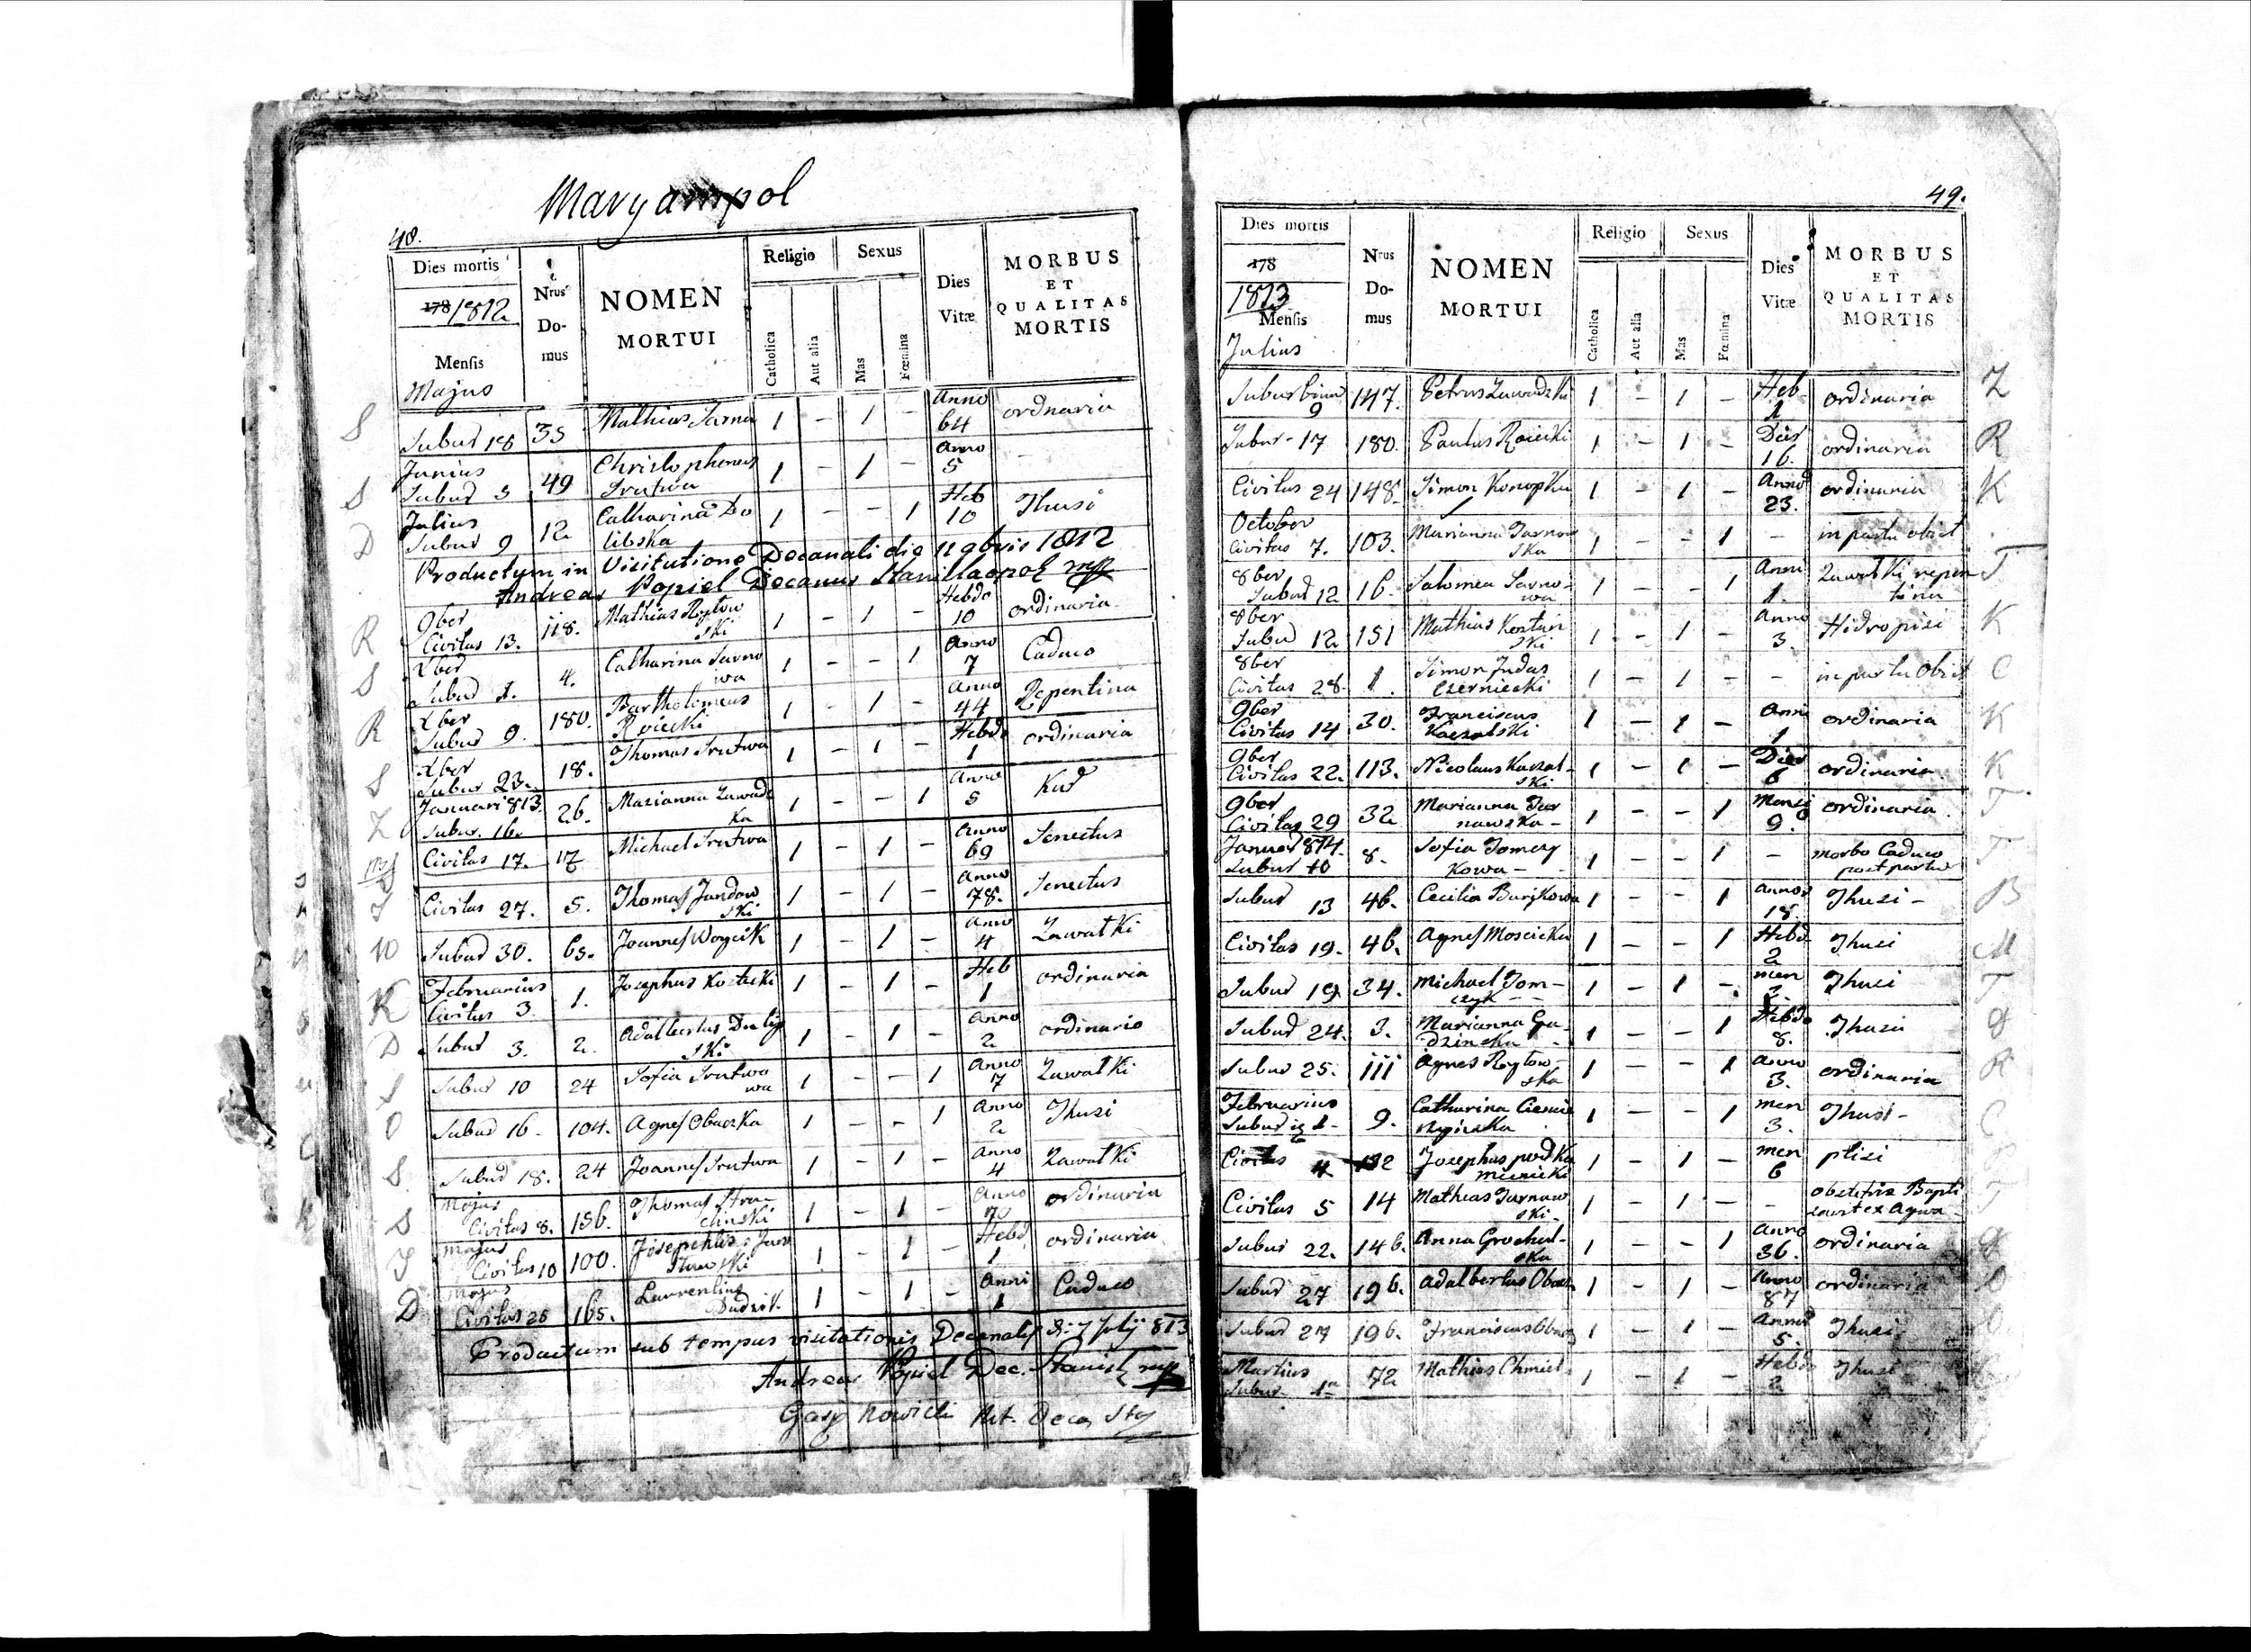 Maryampol
48.
Dies mortis
178 1812
Mensis
Majus
Nrus Do-
mus
NOMEN
MORTUI
Religio
Catholica
Aut alia
Sexus
Mas
Fœmina
Dies
Vitæ
MORBUS
ET
QUALITAS
MORTIS
S Subur 18 35 Mathias Sarna 1 - 1 - Anno 64 ordnaria
S Junius Subur 5 49 Christophorus Srutwa 1 - 1 - Anno 5 -
D Julius Subur 9 12 Catharina Do
libska 1 - - 1 Heb 10 Thusi
Productum in Visitatione Decanali die 11 9bris 1812
Andreas Popiel Decanus
R 9ber Civitas 13. 118. Mathias Roytow
ski 1 - 1 - Hebdo 10 ordinaria
S Xber Subur 1. 4. Catharina Sarno
wa 1 - - 1 Anno 7 Caduco
R Xber Subur 9. 180. Bartholomeus
Roiecki 1 - 1 - Anno 44 Repentina
S Xber Subur 23. 18. Thomas Srutwa 1 - 1 - Hebdo 1 ordinaria
Z Januari 813 Subur. 16. 26. Marianna Zawadz
ka 1 - - 1 Anno 5 Kud
S Civitas 17. 117 Michael Srutwa 1 - 1 - Anno 69 Senectus
J Civitas 27. 5. Thomas Jundow
ski 1 - 1 - Anno 78. Senectus
W Subur 30. 65. Joannes Woycik 1 - 1 - Anno 4 Zawatki
K Februarius Civitas 3. 1. Josephus Kostecki 1 - 1 - Heb 1 ordinaria
D Subur 3. 2. Adalbertus Dulig
ski 1 - 1 - Anno 2 ordinario
S Subur 10 24 Sofia Srutwo
wa 1 - - 1 Anno 7 Zawatki
O Subur 16. 104. Agnes Obaczka 1 - - 1 Anno 2 Thusi
S. Subur 18. 24 Joannes Srutwa 1 - 1 - Anno 4 Zawatki
S Majus Civitas 8. 156. Thomas Stru-
clinski 1 - 1 - Anno 70 ordinaria
J Majus Civitas 10 100. Josephus 1 - 1 - Hebd 1 ordinaria
D Majus Civitas 25 165. Laurentius
Dudzik 1 - 1 - Anni 1 Caduco
Productum sub tempus visitationis Decanalis 813
Andreas Popiel Dec.
Nowicki
49.
Dies mortis
178
1813
Mensis
Julius
Nrus
Do-
mus
NOMEN
MORTUI
Religio
Catholica
Aut alia
Sexus
Mas
Fœmina
Dies
Vitæ
MORBUS
ET
QUALITAS
MORTIS
Suburbium 9 147. Petrus Zawadzki 1 - 1 - Heb 1 ordinaria Z
Subur - 17 180. Paulus Roiecki 1 - 1 - Dies 16. ordinaria R
Civitas 24 148. Simon Konopka 1 - 1 - Anno 23. ordinaria K
October Civitas 7. 103. Marianna Tarnow
ska 1 - - 1 - in partu obiit
8ber Subur 12 16. Salomea Sarno-
wa 1 - - 1 Anni 1. Zawatki repen
tina
8ber Subur 12 151 Mathias Kostur
ski 1 - 1 - Anno 3. Hidropisi K
8ber Civitas 28. 1. Simon Judas
Czerniecki 1 - 1 - - in partu Obiit C
9ber Civitas 14 30. Franciscus
Kaczalski 1 - 1 - Anni 1 ordinaria K
9ber Civitas 22. 113. Nicolaus Kaczal-
ski 1 - 1 - Dies 6 ordinaria K
9ber Civitas 29 32 Marianna Tar
nawska - 1 - - 1 Mensi 9. ordinaria T
Januar 814. Subur 10 8. Sofia Tomczy
kowa - 1 - - 1 - morbo Caduco
post partus T
Subur 13 46. Cecilia Burykowa 1 - - 1 Annos 18. Thusi - B
Civitas 19. 46. Agnes Moscicka 1 - - 1 Hebd 2 Thusi M
Subur 19. 34. Michael Tom-
czyk - - 1 - 1 - men 2. Thusi T
Subur 24. 3. Marianna Ga-
dzinska - 1 - - 1 Hebdo 8. Thusi G
Subur 25. 111 Agnes Roytow-
ska 1 - - 1 Anno 3. ordinaria R
Februarius Subur 9. Catharina 1 - - 1 men 3. Thusi - C
Civitas 4 132 Josephus pod Ka
mienicki 1 - 1 - men 6 ptisi
Civitas 5 14 Mathias Tarnaw
ski - 1 - 1 - - obstetrix Bapti
zavit ex Aqua T
Subur 22. 146. Anna Grochul-
ska 1 - - 1 Anno 36. ordinaria G
Subur 27 196. Adalbertus Obacz 1 - 1 - Anno 87 ordinaria O
Subur 27 196. Franciscus Obacz 1 - 1 - Anno 5. Thusi O
Martius Subur 72 Mathias Chmiel 1 - 1 - Hebdo 2 Thusi